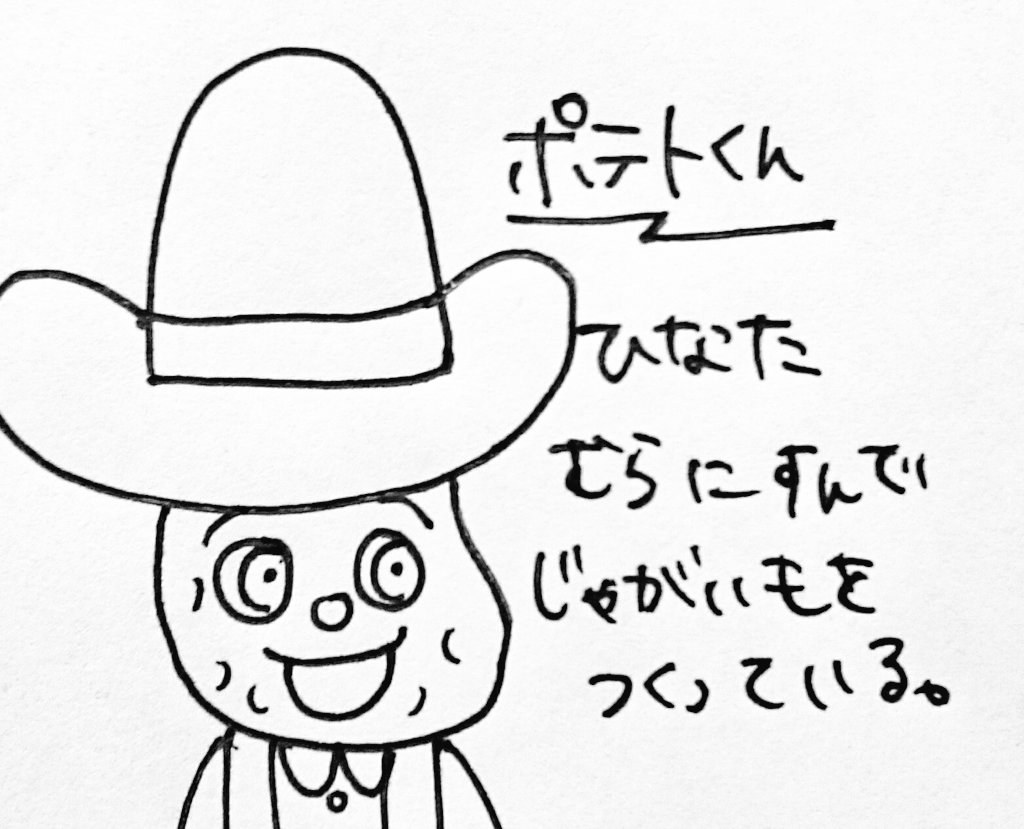 ポテトくん
ひなた
むらにすんで
じゃがいもを
つくっている。